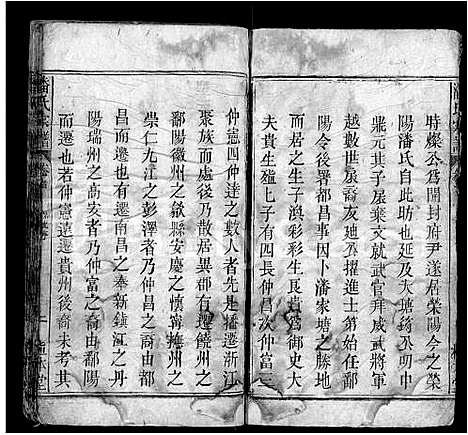 時燦丕爲開封府尹遂居榮陽今之榮
陽潘氏自此昉也延及大宋錡丕明公
鼎元其子扆棄文就武官拜威武將軍
越數世扆裔友廸丕擢進士第始任鄱
陽令後署都昌事因卜潘家塘之勝地
而居之生子湨彩彩生民瞻民瞻以德
夫貴生殖上子有四長仲昌次仲富三
仲憲四仲達之數人者先是播遷浙江
聚族于處後乃散居異郡有遷饒州之
鄱陽徽州之歙縣安慶之懷寧撫州之
崇仁九江之彭澤者乃仲昌之裔由都
昌而遷也有遷南昌之奉新鎮江之丹
陽瑞州之高安者乃仲富之裔由鄱陽
而遷也若仲憲遠遷貴州後裔未考其
潘氏宗譜